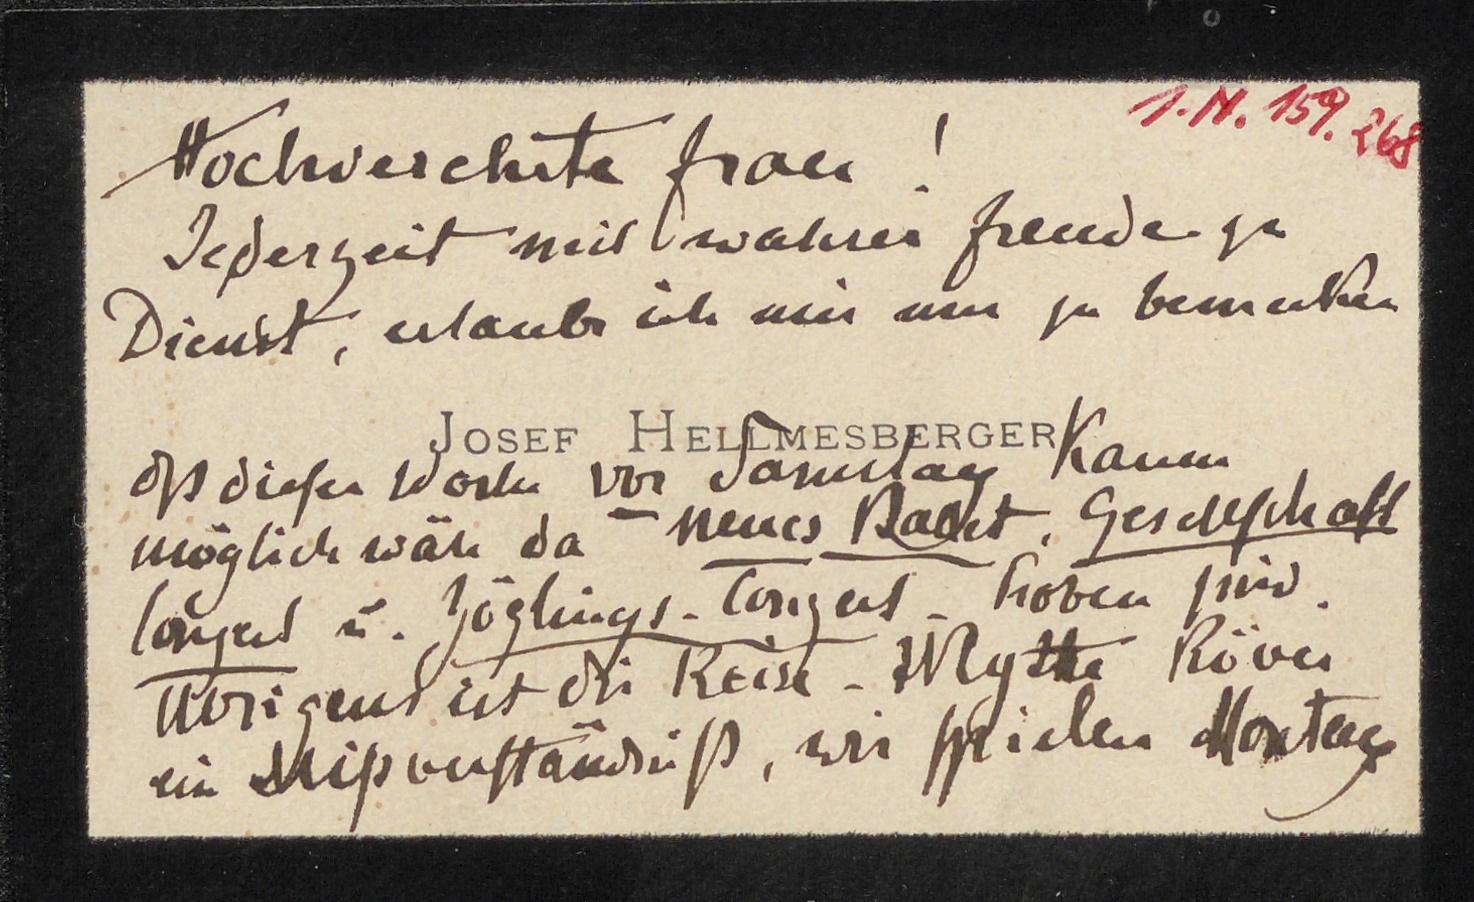 I.N. 159.268
Hochverehrte Frau!
Jederzeit mit wahrer Freude zu
Dienst, erlaube ich mir nur zu bemerken
JOSEF HELLMESBERGER
daß diese Woche vor Samstag kaum
möglich wäre da neues Ballet, Gesellschaft
Conzert u. Zöglings-Conzert-Proben sind.
Übrigens ist die Reise - Mythe Röver
ein Mißverständniß, wir spielen Montag